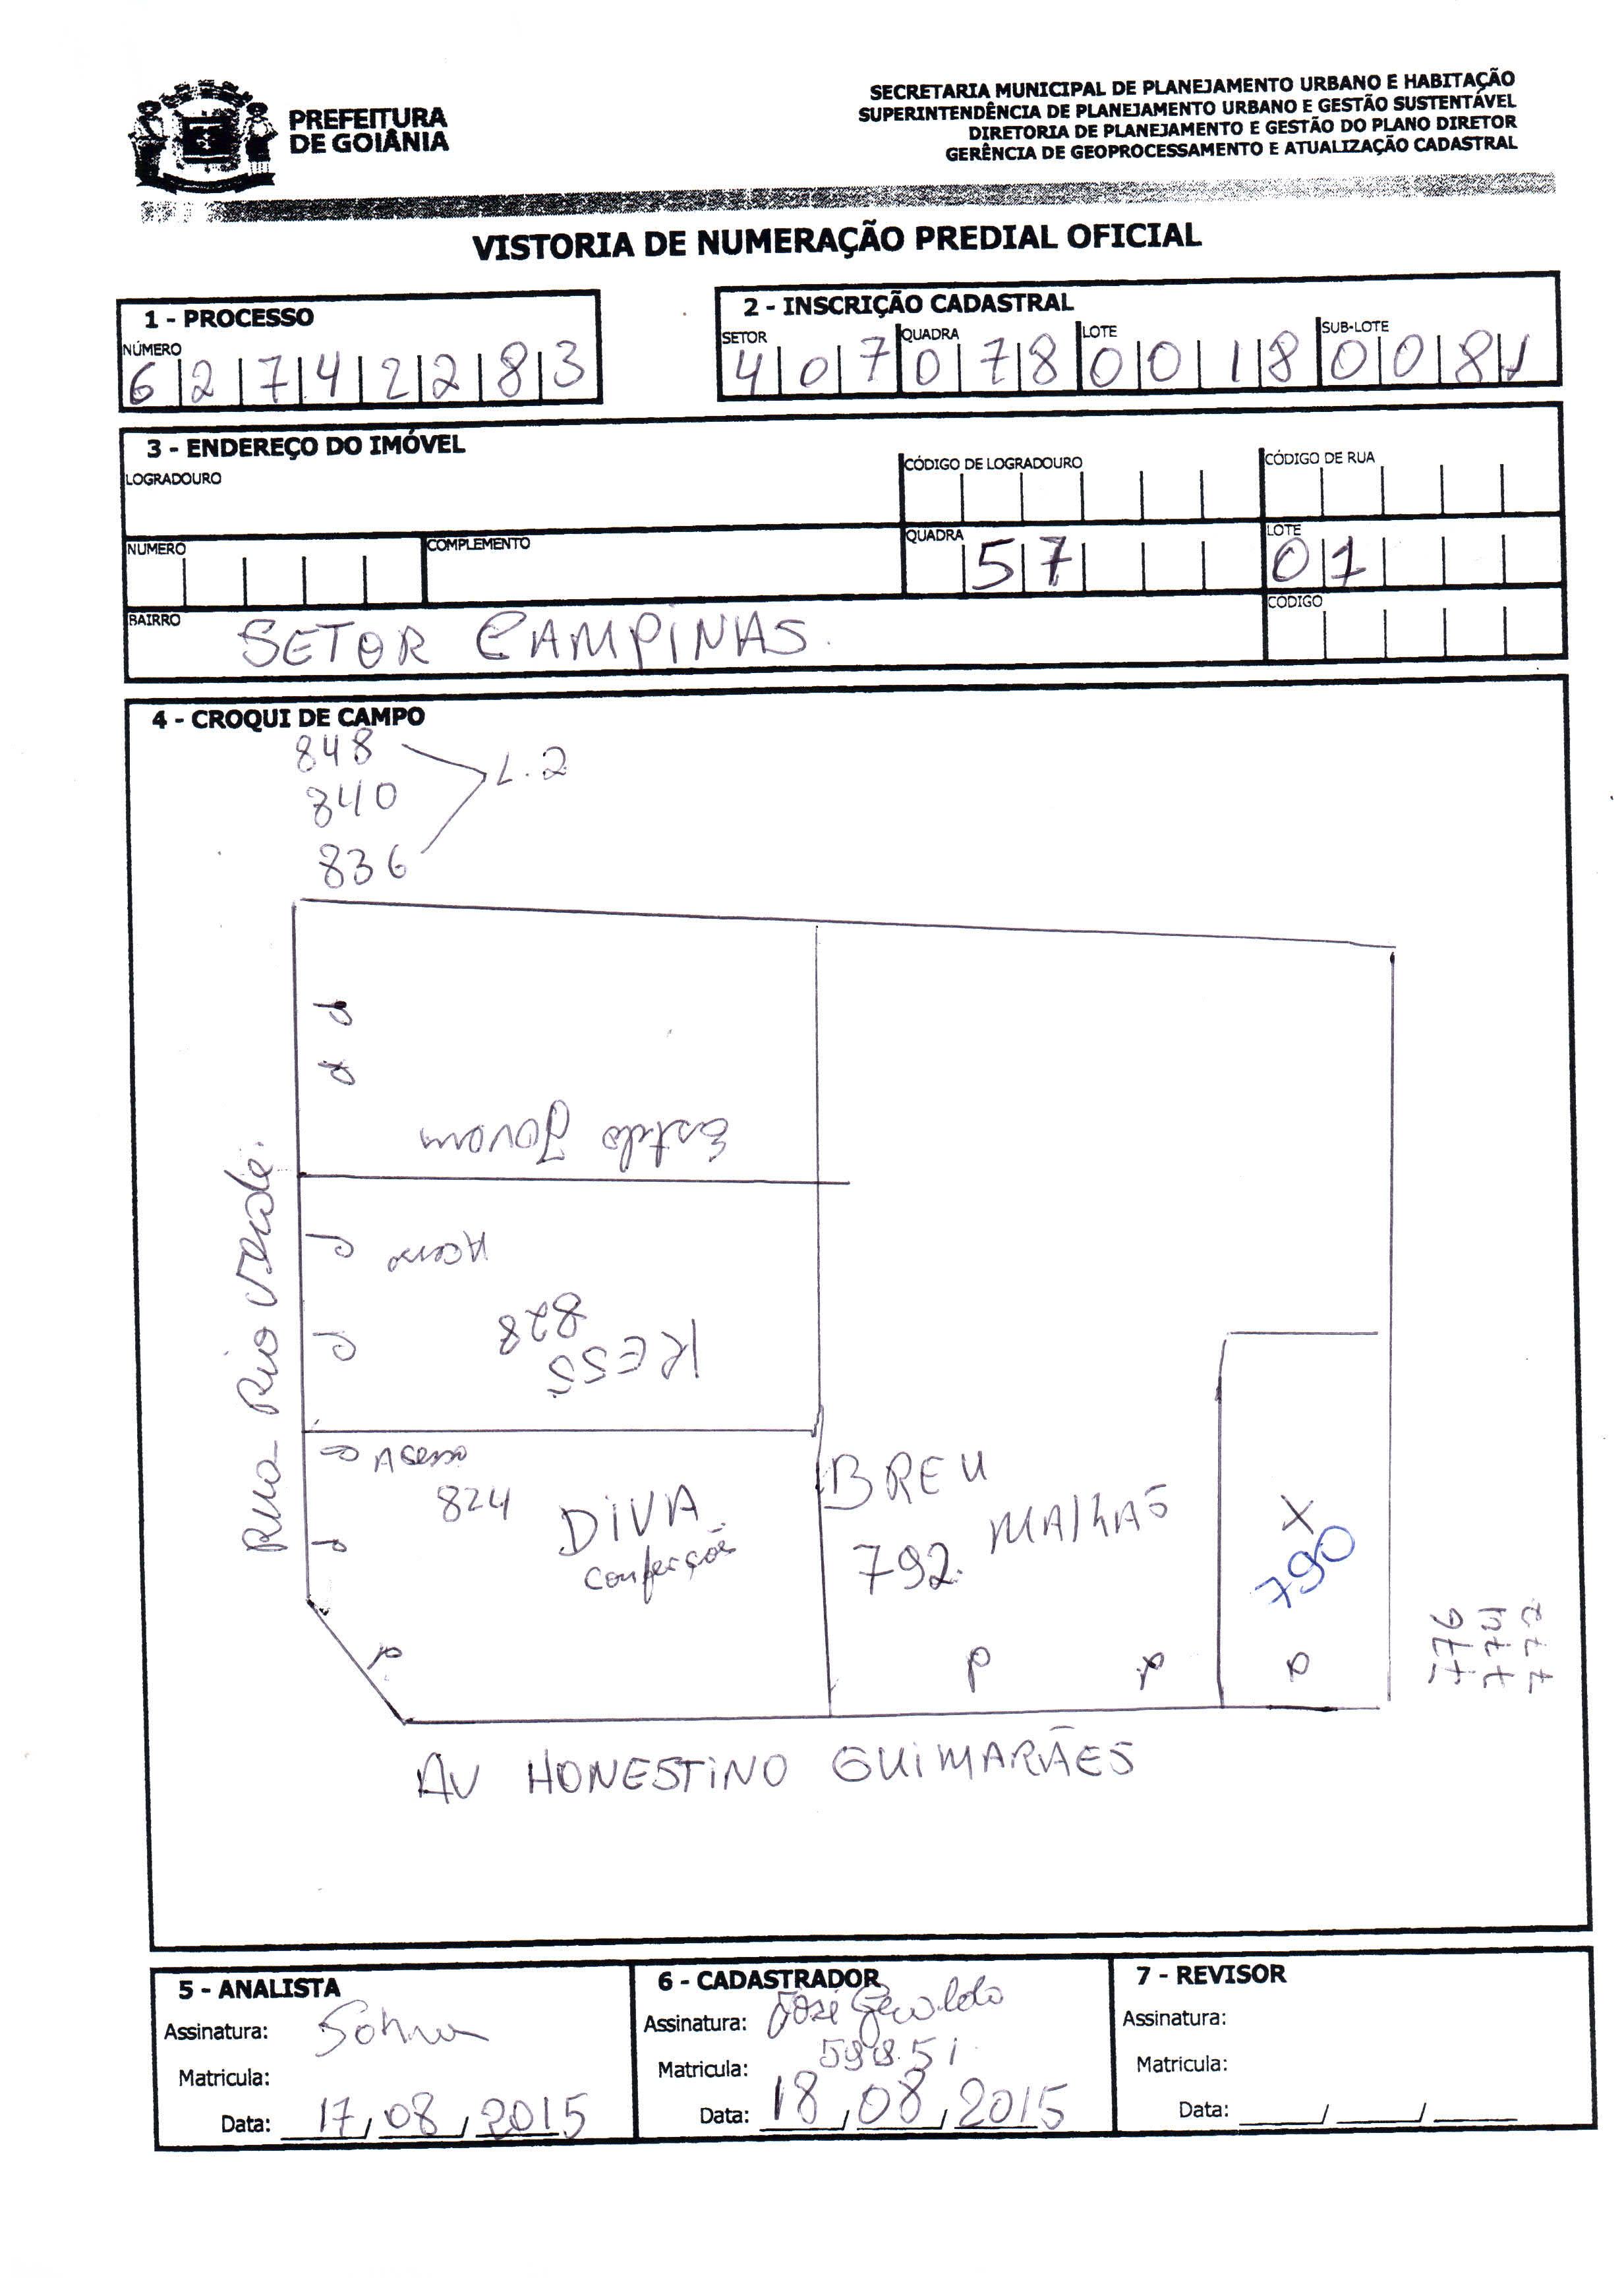 PREFEITURA
DE GOIÂNIA
SECRETARIA MUNICIPAL DE PLANEJAMENTO URBANO E HABITAÇÃO
SUPERINTENDÊNCIA DE PLANEJAMENTO URBANO E GESTÃO SUSTENTÁVEL
DIRETORIA DE PLANEJAMENTO E GESTÃO DO PLANO DIRETOR
GERÊNCIA DE GEOPROCESSAMENTO E ATUALIZAÇÃO CADASTRAL
VISTORIA DE NUMERAÇÃO PREDIAL OFICIAL
1 - PROCESSO
NÚMERO
6 2 7 4 2 2 8 3
2 - INSCRIÇÃO CADASTRAL
SETOR QUADRA LOTE SUB-LOTE
4 0 7 0 7 8 0 0 1 8 0 0 8 1
3 - ENDEREÇO DO IMÓVEL
LOGRADOURO
CÓDIGO DE LOGRADOURO
CÓDIGO DE RUA
NUMERO
COMPLEMENTO
QUADRA
57
LOTE
01
BAIRRO
SETOR CAMPINAS
CÓDIGO
4 - CROQUI DE CAMPO
848
840
836
L.2
Rua Rio Verde.
Estilo Jovem
Acesso
KESS
828
Acesso
824
DIVA
confecções
BREU
MALHAS
792.
X
790
P
P
P
P
776
774
772
AV HONESTINO GUIMARÃES
5 - ANALISTA
Assinatura:
Matricula:
Data: 17/08/2015
6 - CADASTRADOR
Assinatura: José Geraldo
Matricula:
Data: 18/08/2015
7 - REVISOR
Assinatura:
Matricula:
Data: ___/___/___